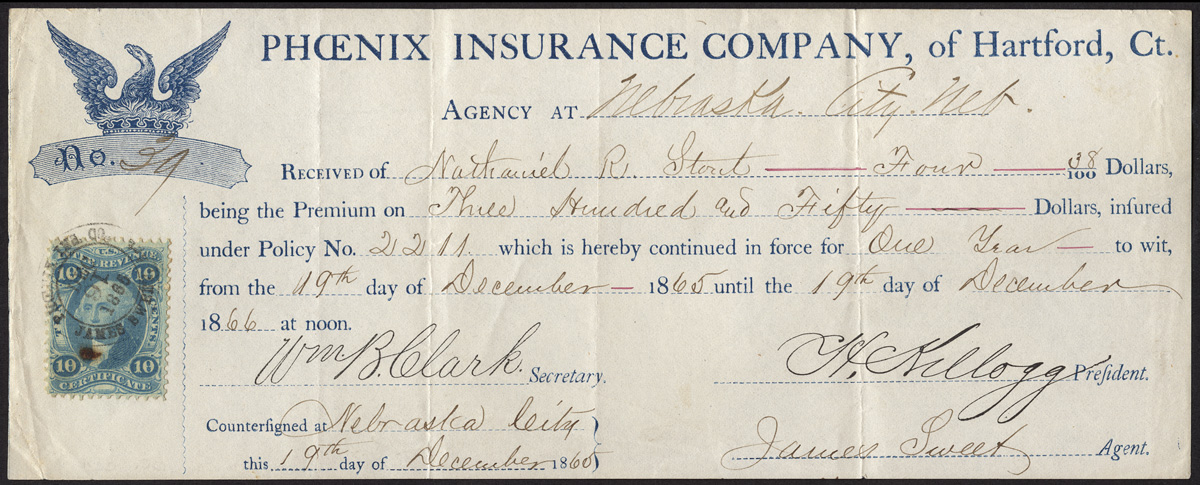 PHŒNIX INSURANCE COMPANY, of Hartford, Ct.
AGENCY AT Nebraska City Neb.
No. 39.
RECEIVED OF Nathaniel R. Stout Four 38/100 Dollars,
being the Premium on Three Hundred and Fifty Dollars, inſured
under Policy No. 2211 which is hereby continued in force for One Year to wit,
from the 19th day of December 1865 until the 19th day of December
1866 at noon.
Wm B. Clark. Secretary.
H. Kellogg Preſident.
Counterſigned at Nebraska City
this 19th day of December 1865
James Sweet Agent.
U.S.
INTER. REVENUE
10 10
JAMES SWEET
CENTS.
10 10
CERTIFICATE